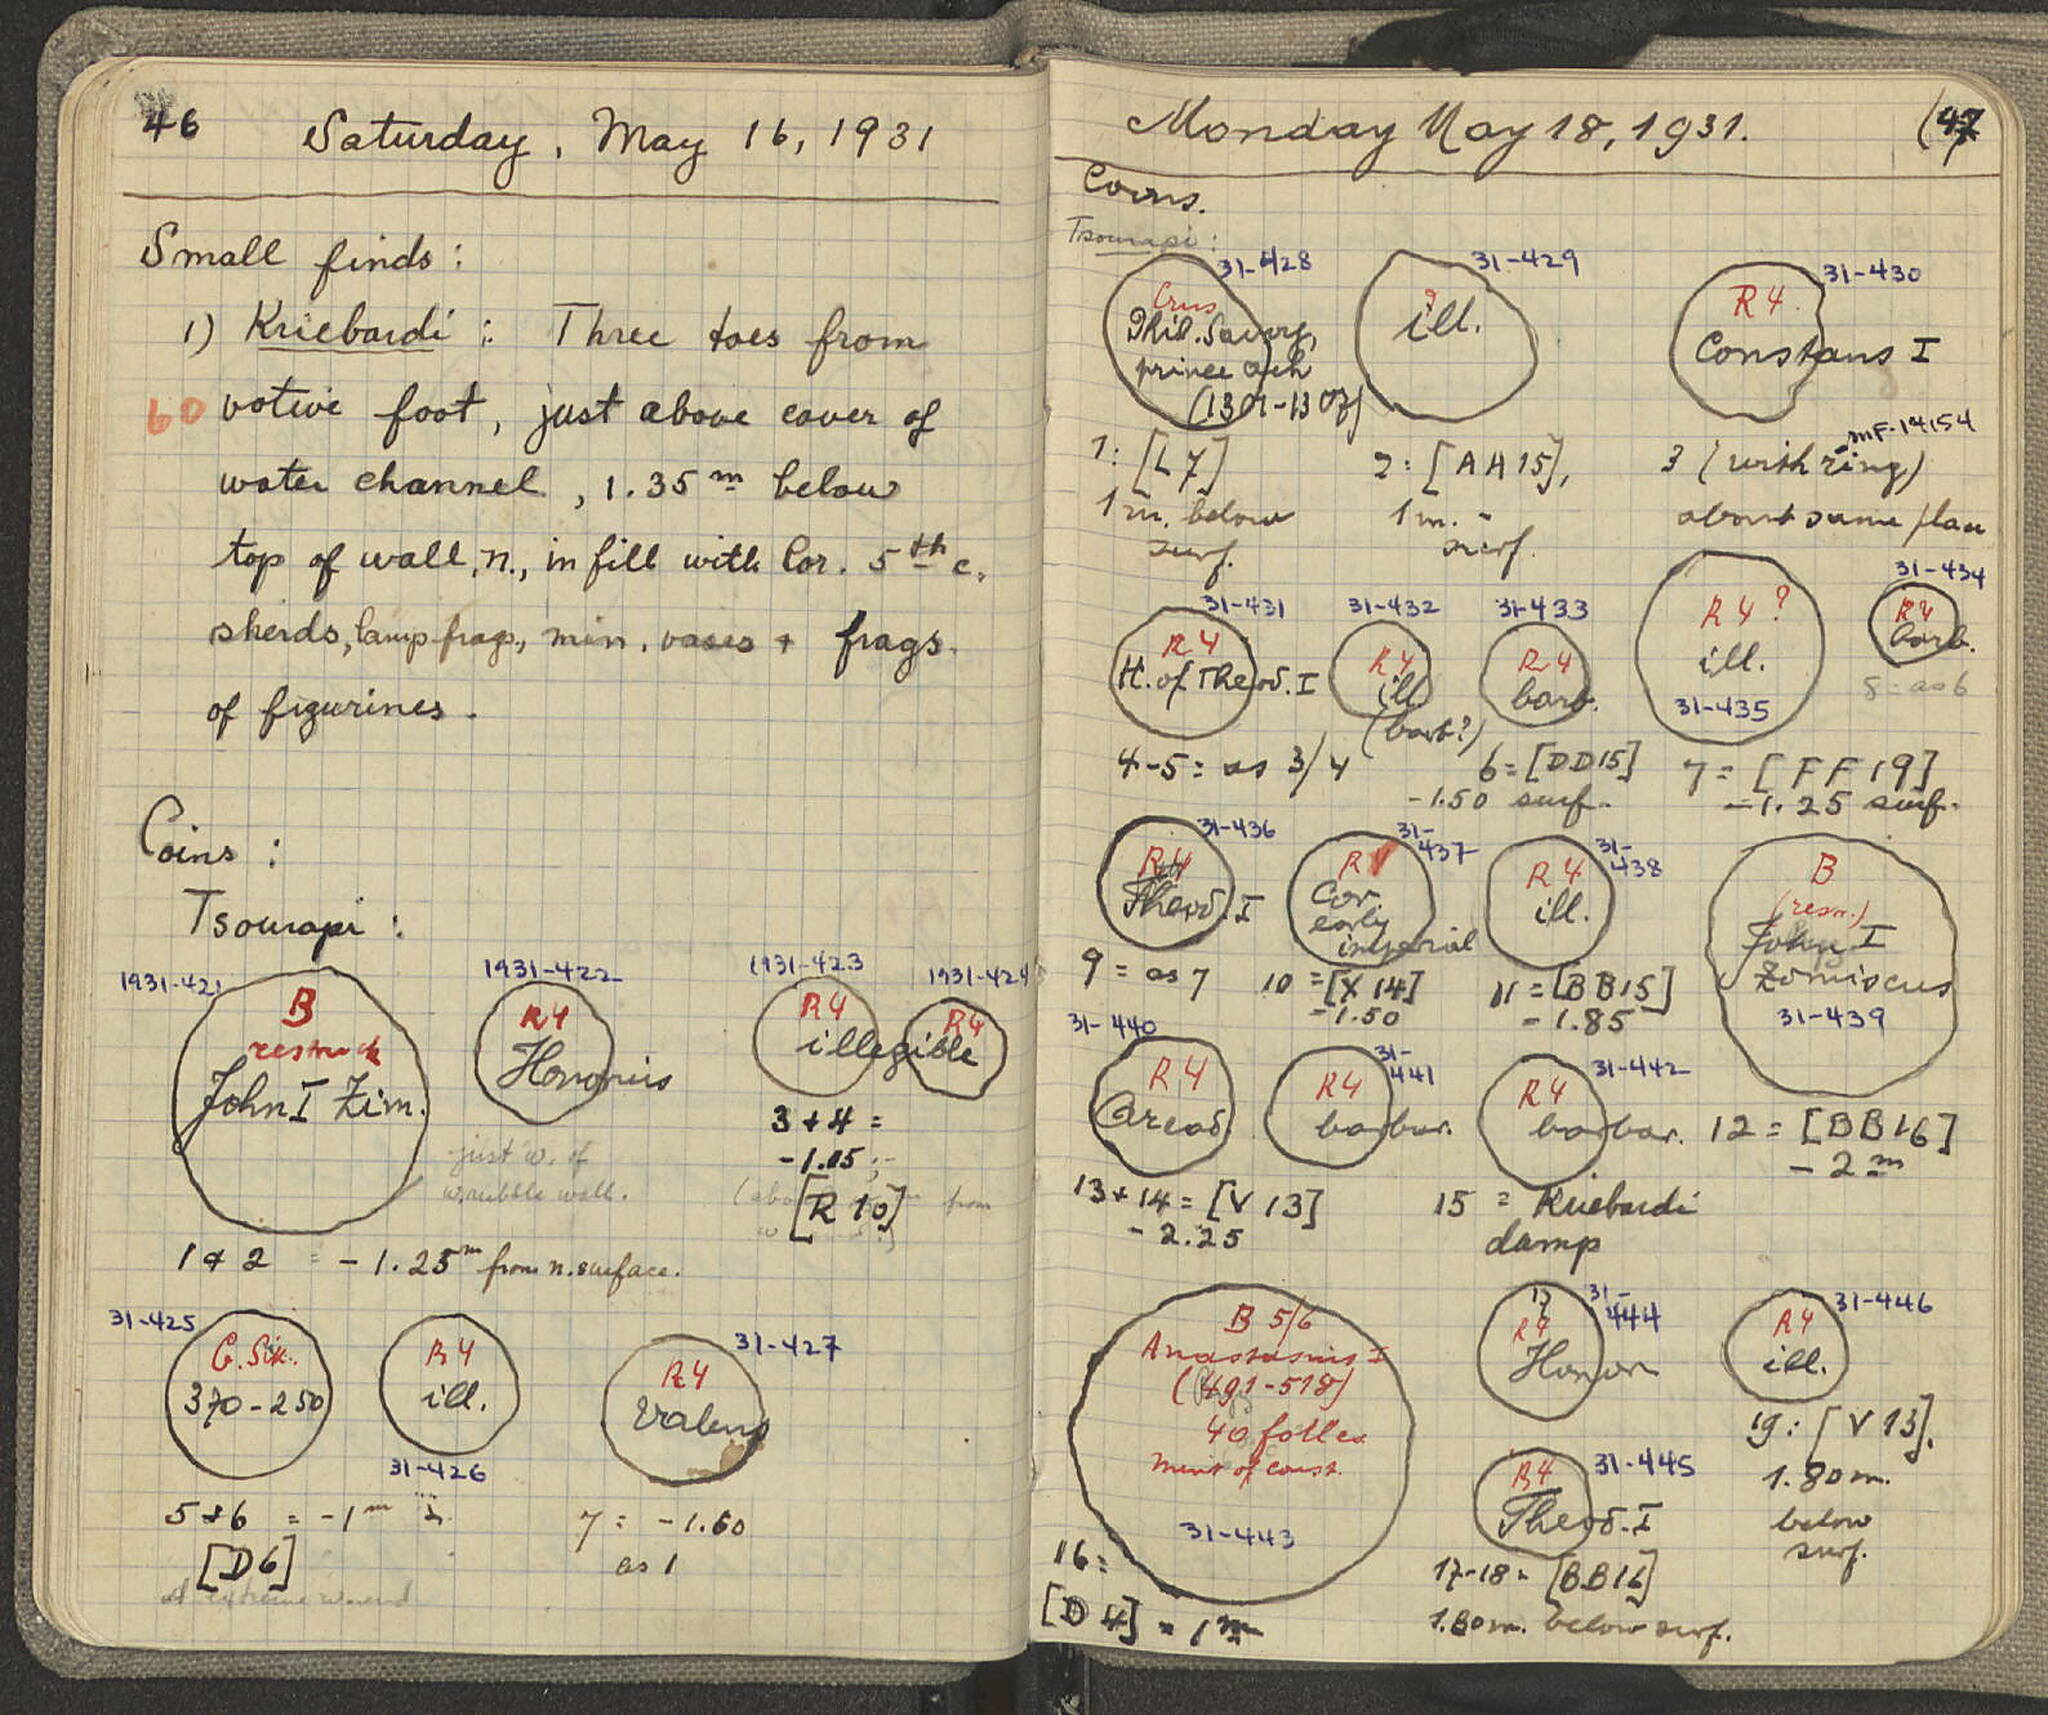 46 Saturday, May 16, 1931
Small finds:
1) Kriebardi: Three toes from
60 votive foot, just above cover of
water channel, 1.35 m below
top of wall, n., in fill with Cor. 5th c.
sherds, lamp frags, min. vases + frags.
of figurines.
Coins:
Tsourapi:
1931-421
B
restruck
John I Zim.
1931-422
R4
Honorius
1931-423
R4
1931-424
R4
illegible
just w. of
w. rubble wall.
3 + 4 =
-1.15;-
[R 10]
from
1 & 2 = -1.25m from n. surface.
31-425
G. Sik.
370-250
R4
ill.
31-426
31-427
R4
Valens
5+6 = -1m
[D6]
7 = -1.60
as 1
Monday May 18, 1931. 47
Coins.
Tsourapi:
31-428
Crus
Phil. Savoy,
prince Ach
(1301-1307)
31-429
?
ill.
31-430
R4.
Constans I
1: [L7]
1m. below
surf.
2: [AA15],
1m. "
surf.
MF-14154
3 (with ring)
about same place
31-431
R4
H. of Theod. I
31-432
R4
ill
(barb?)
31-433
R4
barb.
R4?
ill.
31-435
31-434
R4
barb.
8 = as 6
4-5 = as 3/4
6 = [DD15]
-1.50 surf.
7 = [FF19]
-1.25 surf.
31-436
R4
Theod. I
31-437
R
Cor.
early
imperial
31-438
R4
ill.
B
(restr.)
John I
Zimiscus
31-439
9 = as 7
10 = [X 14]
-1.50
11 = [BB15]
-1.85
31-440
R4
Arcad
31-441
R4
barbar.
31-442
R4
barbar.
12 = [BB16]
-2m
13+14 = [V 13]
-2.25
15 = Kriebardi
damp
B 5/6
Anastasius I
(491-518)
40 folles
mint of const.
31-443
17
31-444
R4
Honor
31-446
R4
ill.
31-445
R4
Theod. I
19: [V 13].
1.80m.
below
surf.
16 =
[D 4] = 1m
17-18 = [BB16]
1.80m. below surf.